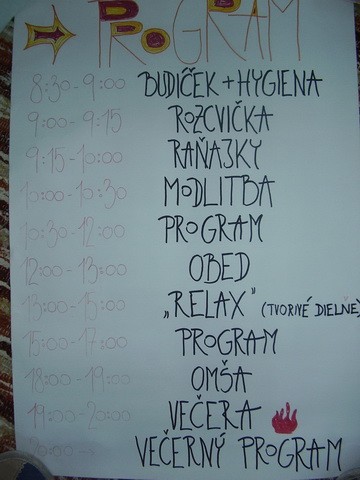 PROGRAM
8:30-9:00 BUDÍČEK + HYGIENA
9:00-9:15 ROZCVIČKA
9:15-10:00 RAŇAJKY
10:00-10:30 MODLITBA
10:30-12:00 PROGRAM
12:00-13:00 OBED
13:00-15:00 „RELAX" (TVORIVÉ DIELNE)
15:00-17:00 PROGRAM
18:00-19:00 OMŠA
19:00-20:00 VEČERA
VEČERNÝ PROGRAM